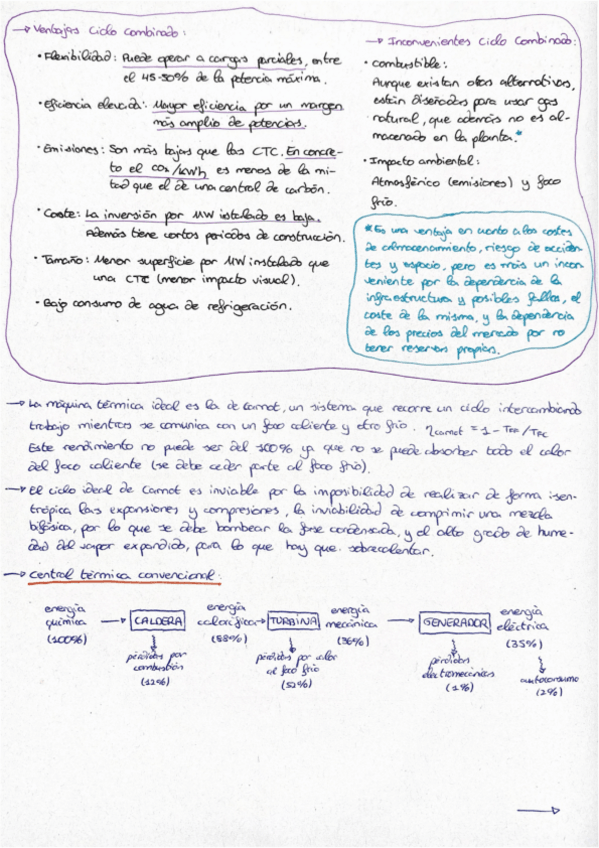 → Ventajas Ciclo Combinado:
· Flexibilidad: Puede operar a cargas parciales, entre
el 45-50% de la potencia máxima.
· Eficiencia elevada: Mayor eficiencia por un margen
más amplio de potencias.
· Emisiones: Son más bajas que las CTC. En concre-
to el CO₂/kWh es menos de la mi-
tad que el de una central de carbón.
· Coste: La inversión por MW istalado es baja.
Además tiene cortos periodos de construcción.
· Tamaño: Menor superficie por MW instalado que
una CTC (menor impacto visual).
· Bajo consumo de agua de refrigeración.
→ Inconvenientes Ciclo Combinado:
· Combustible:
Aunque existan otras alternativas,
están diseñadas para usar gas
natural, que además no es al-
macenado en la planta.*
· Impacto ambiental:
Atmosférico (emisiones) y foco
frío.
*Es una ventaja en cuanto a los costes
de almacenamiento, riesgo de acciden-
tes y espacio, pero es más un incon-
veniente por la dependencia de la
infraestructura y posibles fallas, el
coste de la misma, y la dependencia
de los precios del mercado por no
tener reservas propias.
→ La máquina térmica ideal es la de Carnot, un sistema que recorre un ciclo intercambiando
trabajo mientras se comunica con un foco caliente y otro frío. η carnot = 1 - TFF/TFC
Este rendimiento no puede ser del 100% ya que no se puede absorber todo el calor
del foco caliente (se debe ceder parte al foco frío).
→ El ciclo ideal de Carnot es inviable por la imposibilidad de realizar de forma isen-
trópica las expansiones y compresiones, la inviabilidad de comprimir una mezcla
bifásica, por lo que se debe bombear la fase condensada, y el alto grado de hume-
dad del vapor expandido, para lo que hay que sobrecalentar.
→ Central térmica convencional:
energía química (100%) → CALDERA energía calorífica (88%) → TURBINA energía mecánica (36%) → GENERADOR energía eléctrica (35%)
pérdidas por combustión (12%)
pérdidas por calor al foco frío (52%)
pérdidas electromecánicas (1%)
autoconsumo (2%)